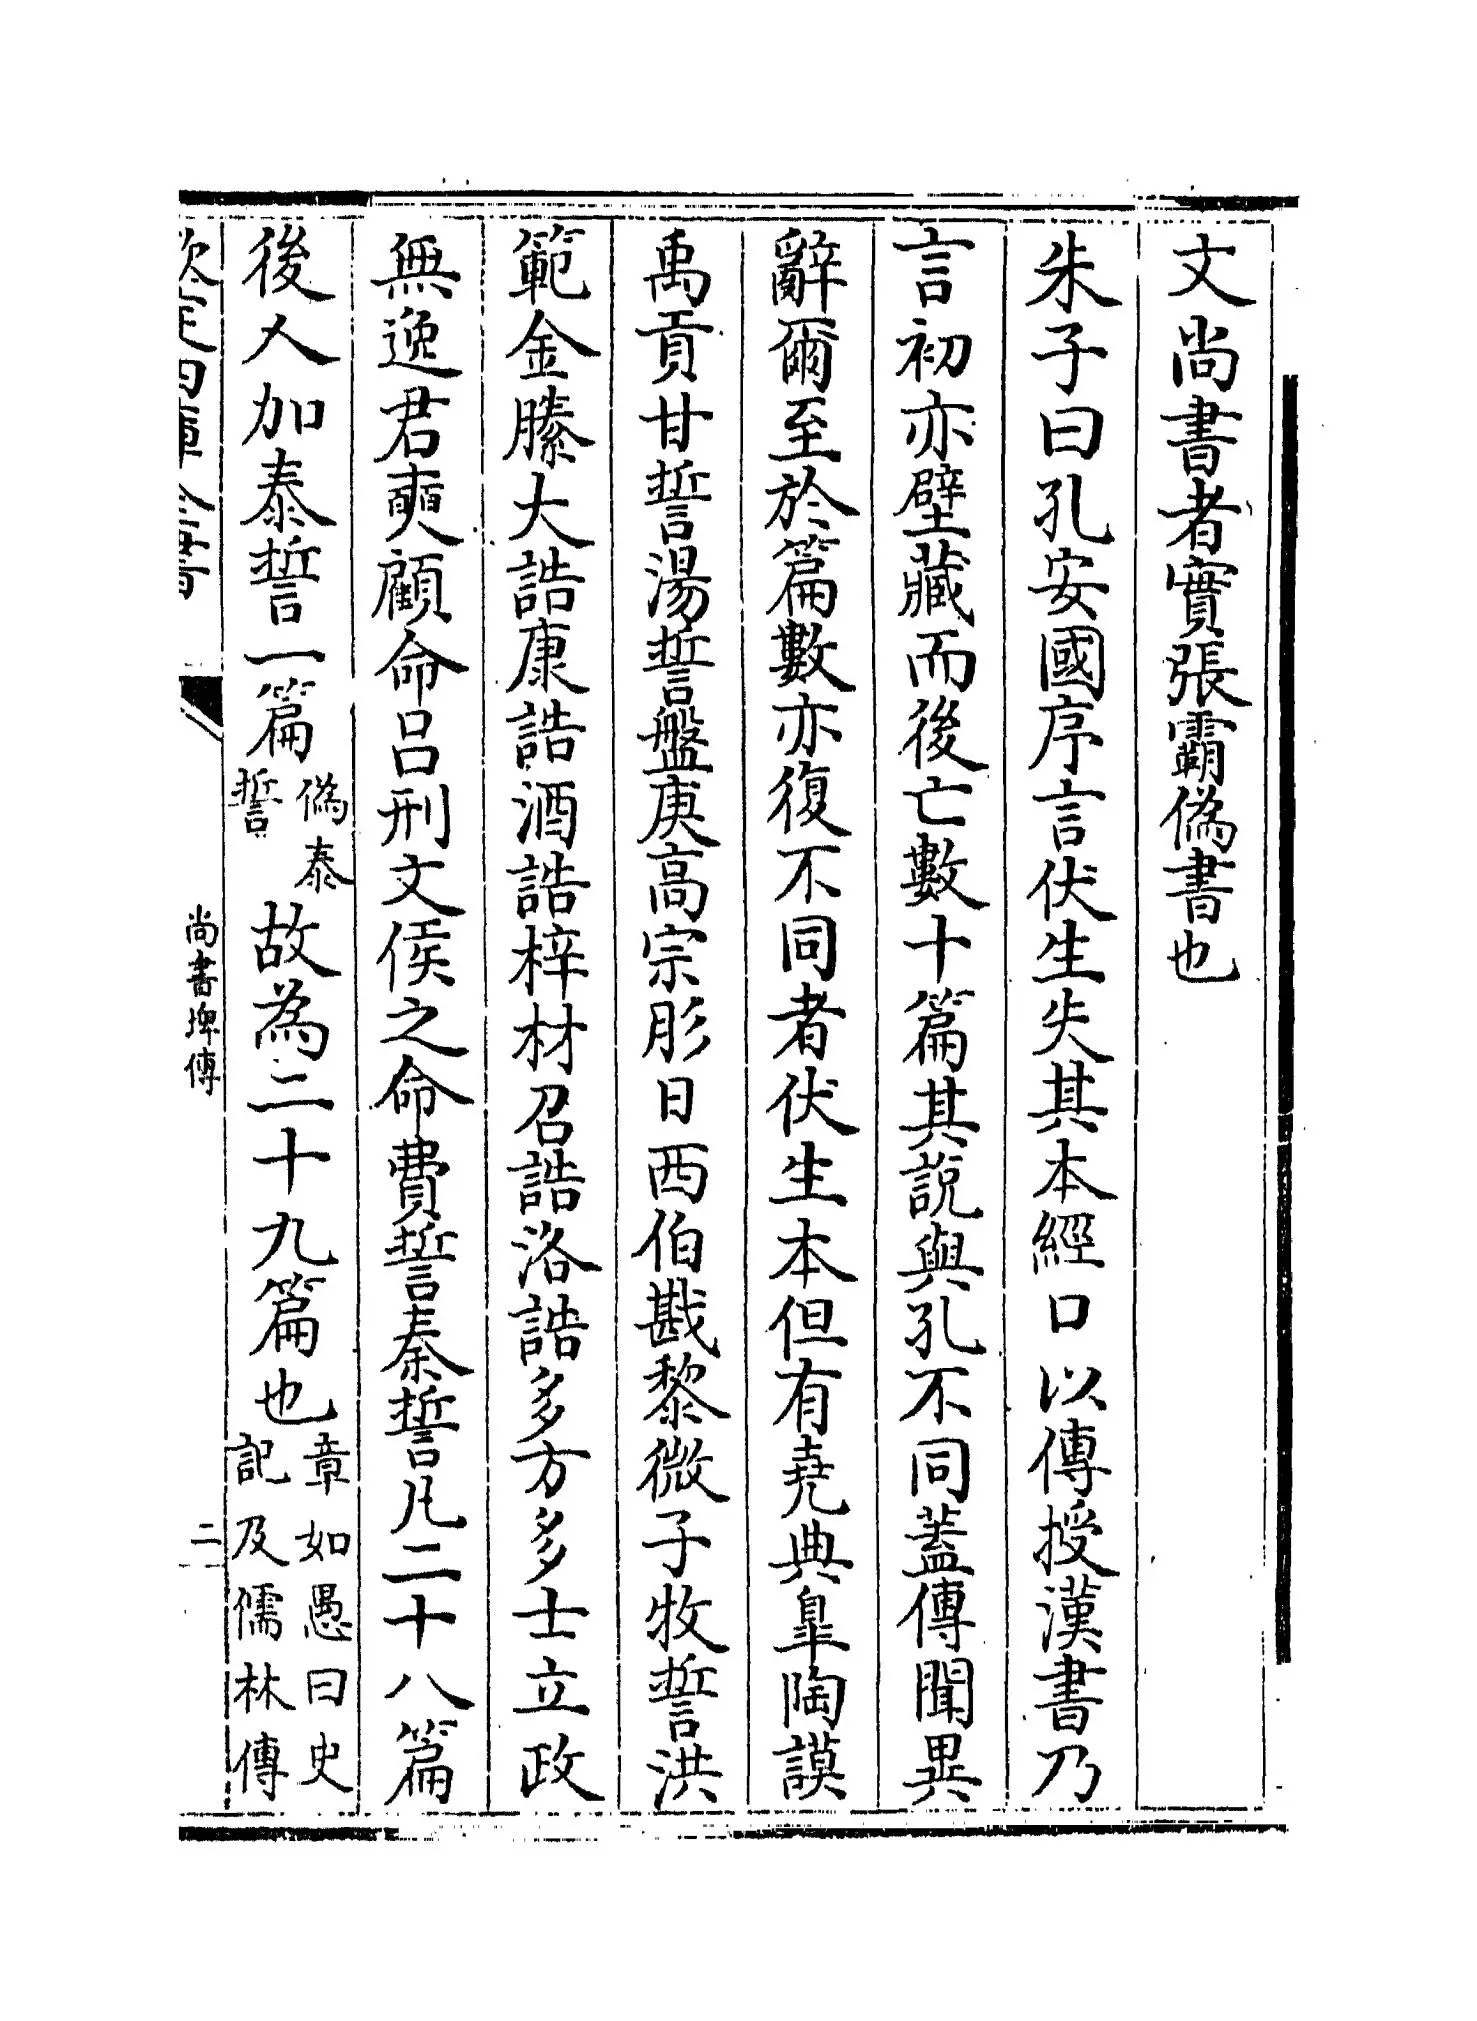 文尚書者實張霸偽書也
朱子曰孔安國序言伏生失其本經口以傳授漢書乃
言初亦壁藏而後亡數十篇其説與孔不同蓋傳聞異
辭爾至於篇數亦復不同者伏生本但有堯典臯陶謨
禹貢甘誓湯誓盤庚高宗肜日西伯戡黎微子牧誓洪
範金縢大誥康誥酒誥梓材召誥洛誥多方多士立政
無逸君奭顧命呂刑文侯之命費誓秦誓凡二十八篇
後人加泰誓一篇偽泰誓故為二十九篇也章如愚曰史記及儒林傳
欽定四庫全書
尚書埤傳
二